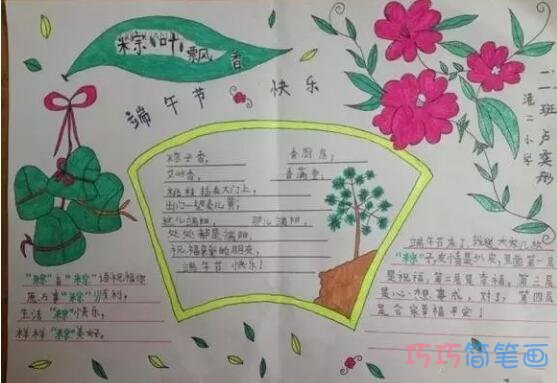 粽叶飘香
端午节 快乐
二一班卢奕彤
港二小学
粽子香， 香厨房；
艾叶香， 香满堂；
桃枝插在大门上，
出门一望麦儿黄；
这儿端阳， 那儿端阳，
处处都是端阳，
祝福亲爱的朋友，
端午节快乐！
"粽"自"粽"语祝福你
愿万事"粽"顺利，
生活"粽"快乐，
样样"粽"美好。
端午节来了，我送大家几枚
"粽"子，友情是外皮，里面第一层
是祝福，第二层是幸福，第三层
是心想事成，对了，第四层
是合家幸福平安！
巧巧简笔画